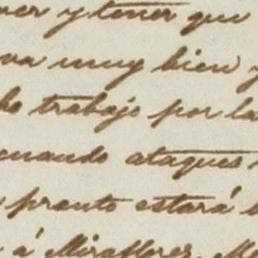 ver y tener que
va muy bien y
ho trabajo por la
cuando ataques
pronto estará
á Miraflores. Me